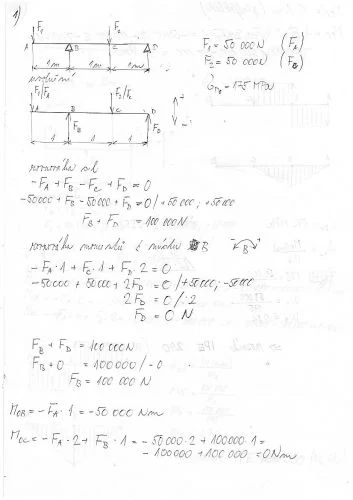 1)
F₁ F₂
A B C D
1m 1m 1m
F₁ = 50 000 N (F_A)
F₂ = 50 000 N
F₁/F_A F₂/F_C
A B C D
1 1 1
F_B F_D
+
-
rovnováha sil
-F_A + F_B - F_C + F_D = 0
-50000 + F_B - 50000 + F_D = 0 / +50000; +50000
F_B + F_D = 100000N
rovnováha momentů B
-F_A·1 + F_C·1 + F_D·2 = 0
-50000 + 50000 + 2F_D = 0 / +50000; -50000
2F_D = 0 /:2
F_D = 0 N
F_B + F_D = 100000N
F_B + 0 = 100000 / -0
F_B = 100 000 N
M_OB = -F_A·1 = -50 000 Nm
M_OC = -F_A·2 + F_B·1 = -50 000·2 + 100000·1 =
-100000 + 100000 = 0Nm